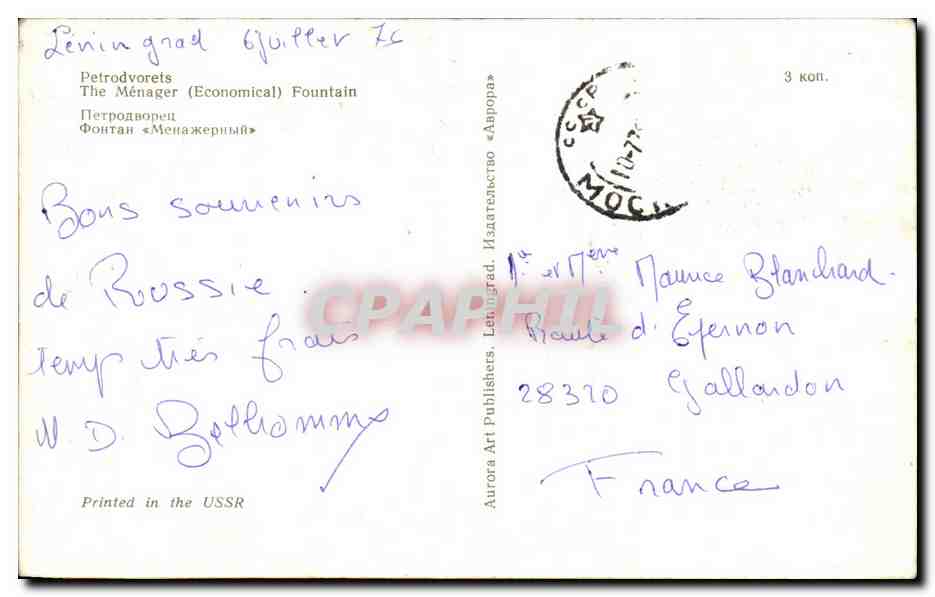 Léningrad 6 Juillet
Petrodvorets
The Ménager (Economical) Fountain
Петродворец
Фонтан «Менажерный»
3 коп.
СССР
10-7
МОСК
Bons souvenirs
de Russie.
temps très frais
M. D. Belhomme
Printed in the USSR
Aurora Art Publishers. Leningrad. Издательство «Аврора»
Mr et Mme Maurice Blanchard.
Route d'Epernon
28320 Gallardon
France
CPAPHIL